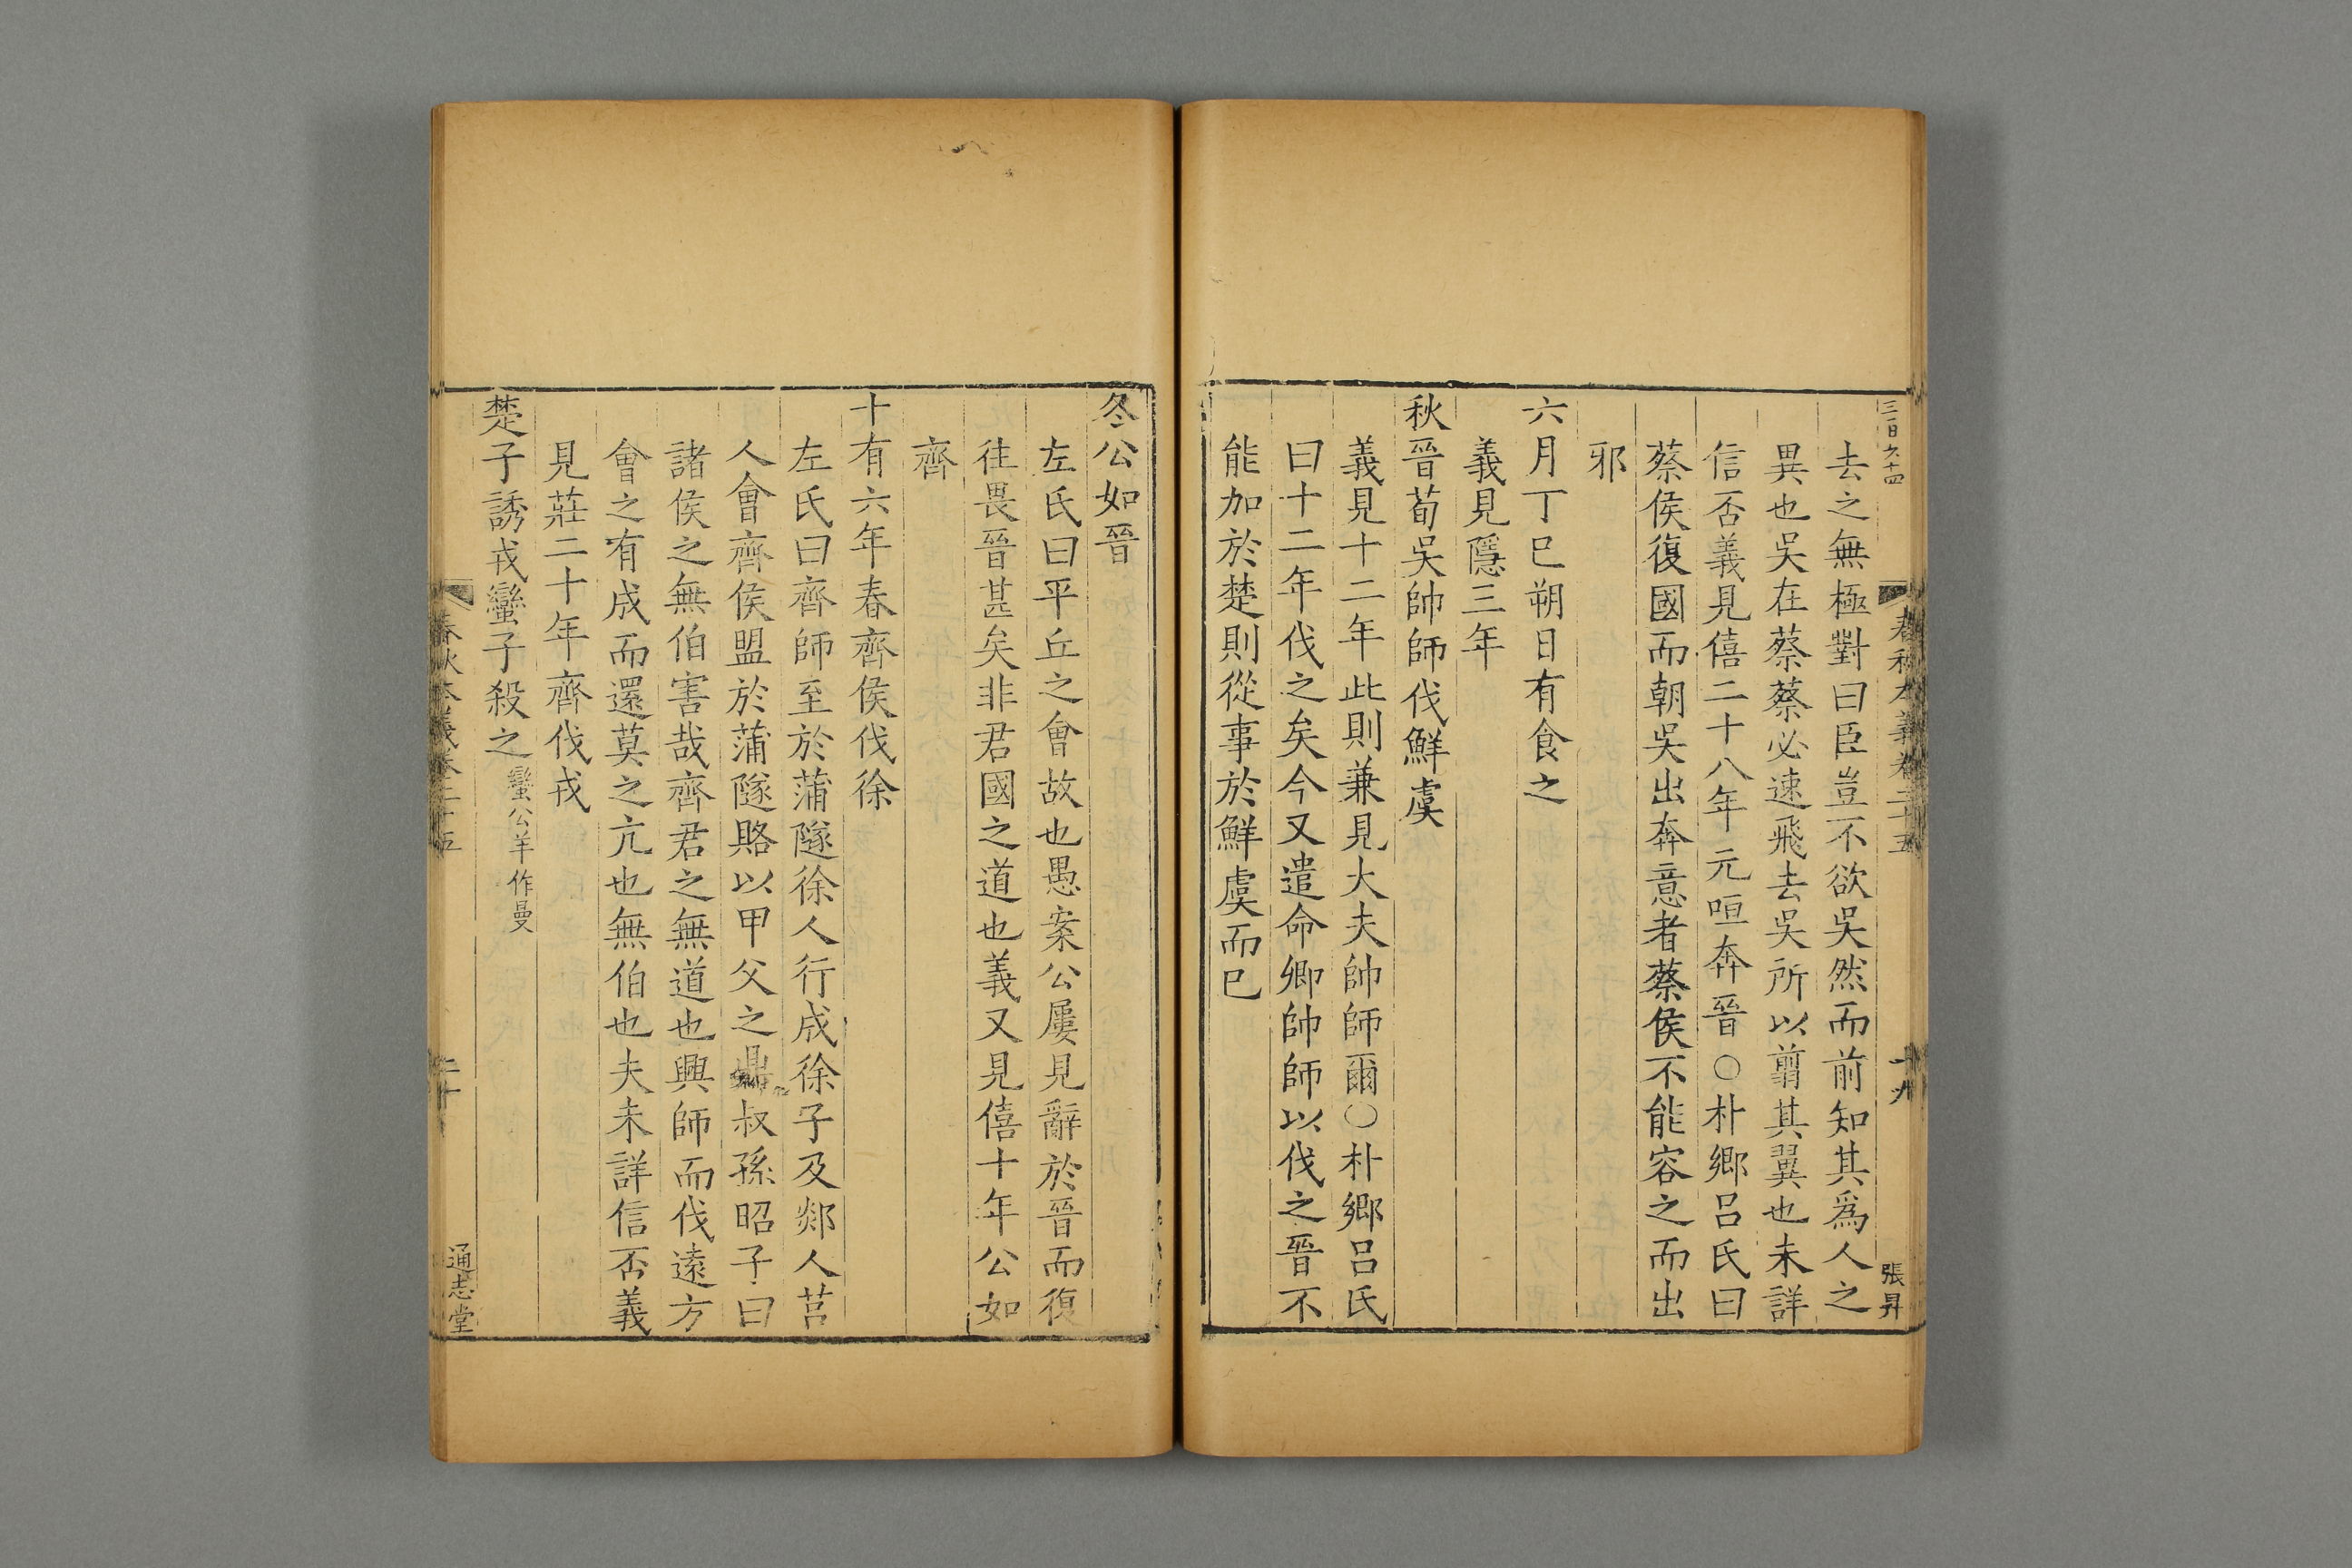 三百九十四
春秋本義卷二十五
十九
張昇
去之無極對曰臣豈不欲吳然而前知其爲人之
異也吳在蔡蔡必速飛去吳所以翦其翼也未詳
信否義見僖二十八年元咺奔晉○朴鄉呂氏曰
蔡侯復國而朝吳出奔意者蔡侯不能容之而出
邪
六月丁巳朔日有食之
義見隱三年
秋晉荀吳帥師伐鮮虞
義見十二年此則兼見大夫帥師爾○朴鄉呂氏
曰十二年伐之矣今又遣命卿帥師以伐之晉不
能加於楚則從事於鮮虞而已
冬公如晉
左氏曰平丘之會故也愚案公屢見辭於晉而復
往畏晉甚矣非君國之道也義又見僖十年公如
齊
十有六年春齊侯伐徐
左氏曰齊師至於蒲隧徐人行成徐子及郯人莒
人會齊侯盟於蒲隧賂以甲父之鼎叔孫昭子曰
諸侯之無伯害哉齊君之無道也興師而伐遠方
會之有成而還莫之亢也無伯也夫未詳信否義
見莊二十年齊伐戎
楚子誘戎蠻子殺之蠻公羊作曼
春秋本義卷二十五
二十
通志堂